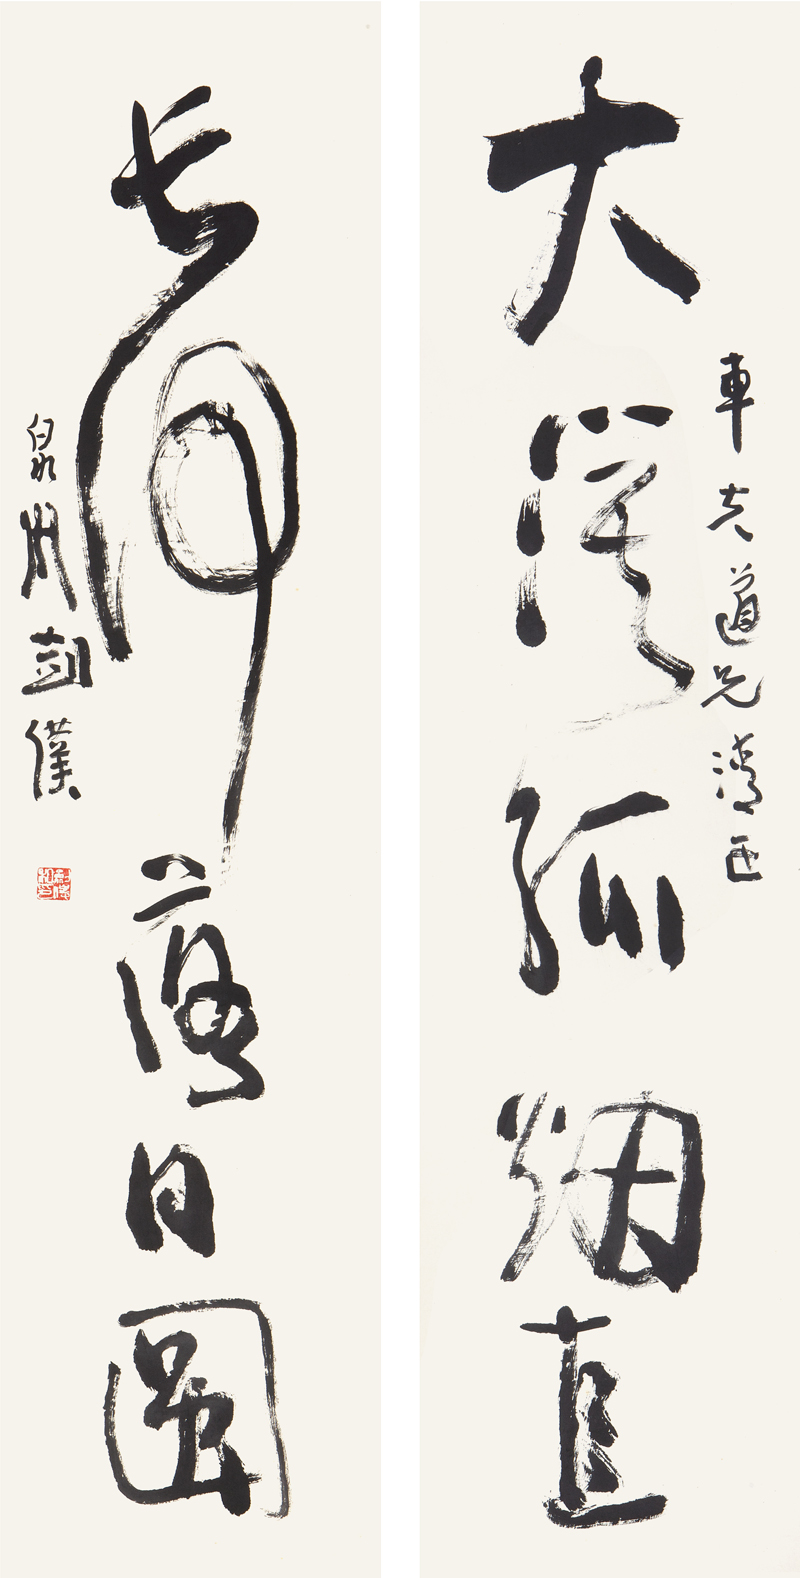 車夫道兄清正
大漠孤烟直
长河落日圓
泉州劍僕